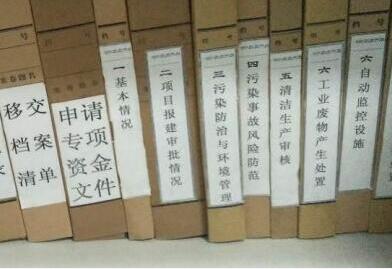 移交
档案
清单
申请
专项
资金
文件
一基本情况
二项目报建审批情况
三污染防治与环境管理
四污染事故风险防范
五清洁生产审核
六工业废物产生处置
六自动监控设施